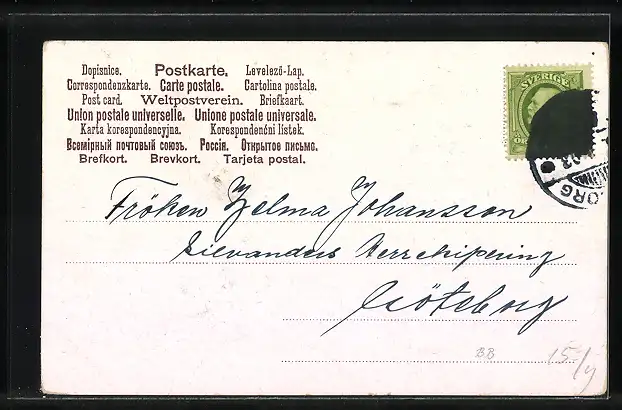 Dopisnice. Postkarte. Levelező-Lap.
Correspondenzkarte. Carte postale. Cartolina postale.
Post card. Weltpostverein. Briefkaart.
Union postale universelle. Unione postale universale.
Karta korespondencyjna. Korespondenční lístek.
Всемірный почтовый союзъ. Россія. Открытое письмо.
Brefkort. Brevkort. Tarjeta postal.
SVERIGE
Fröken Zelma Johansson
Göteborg
BB
15-/4
ORG